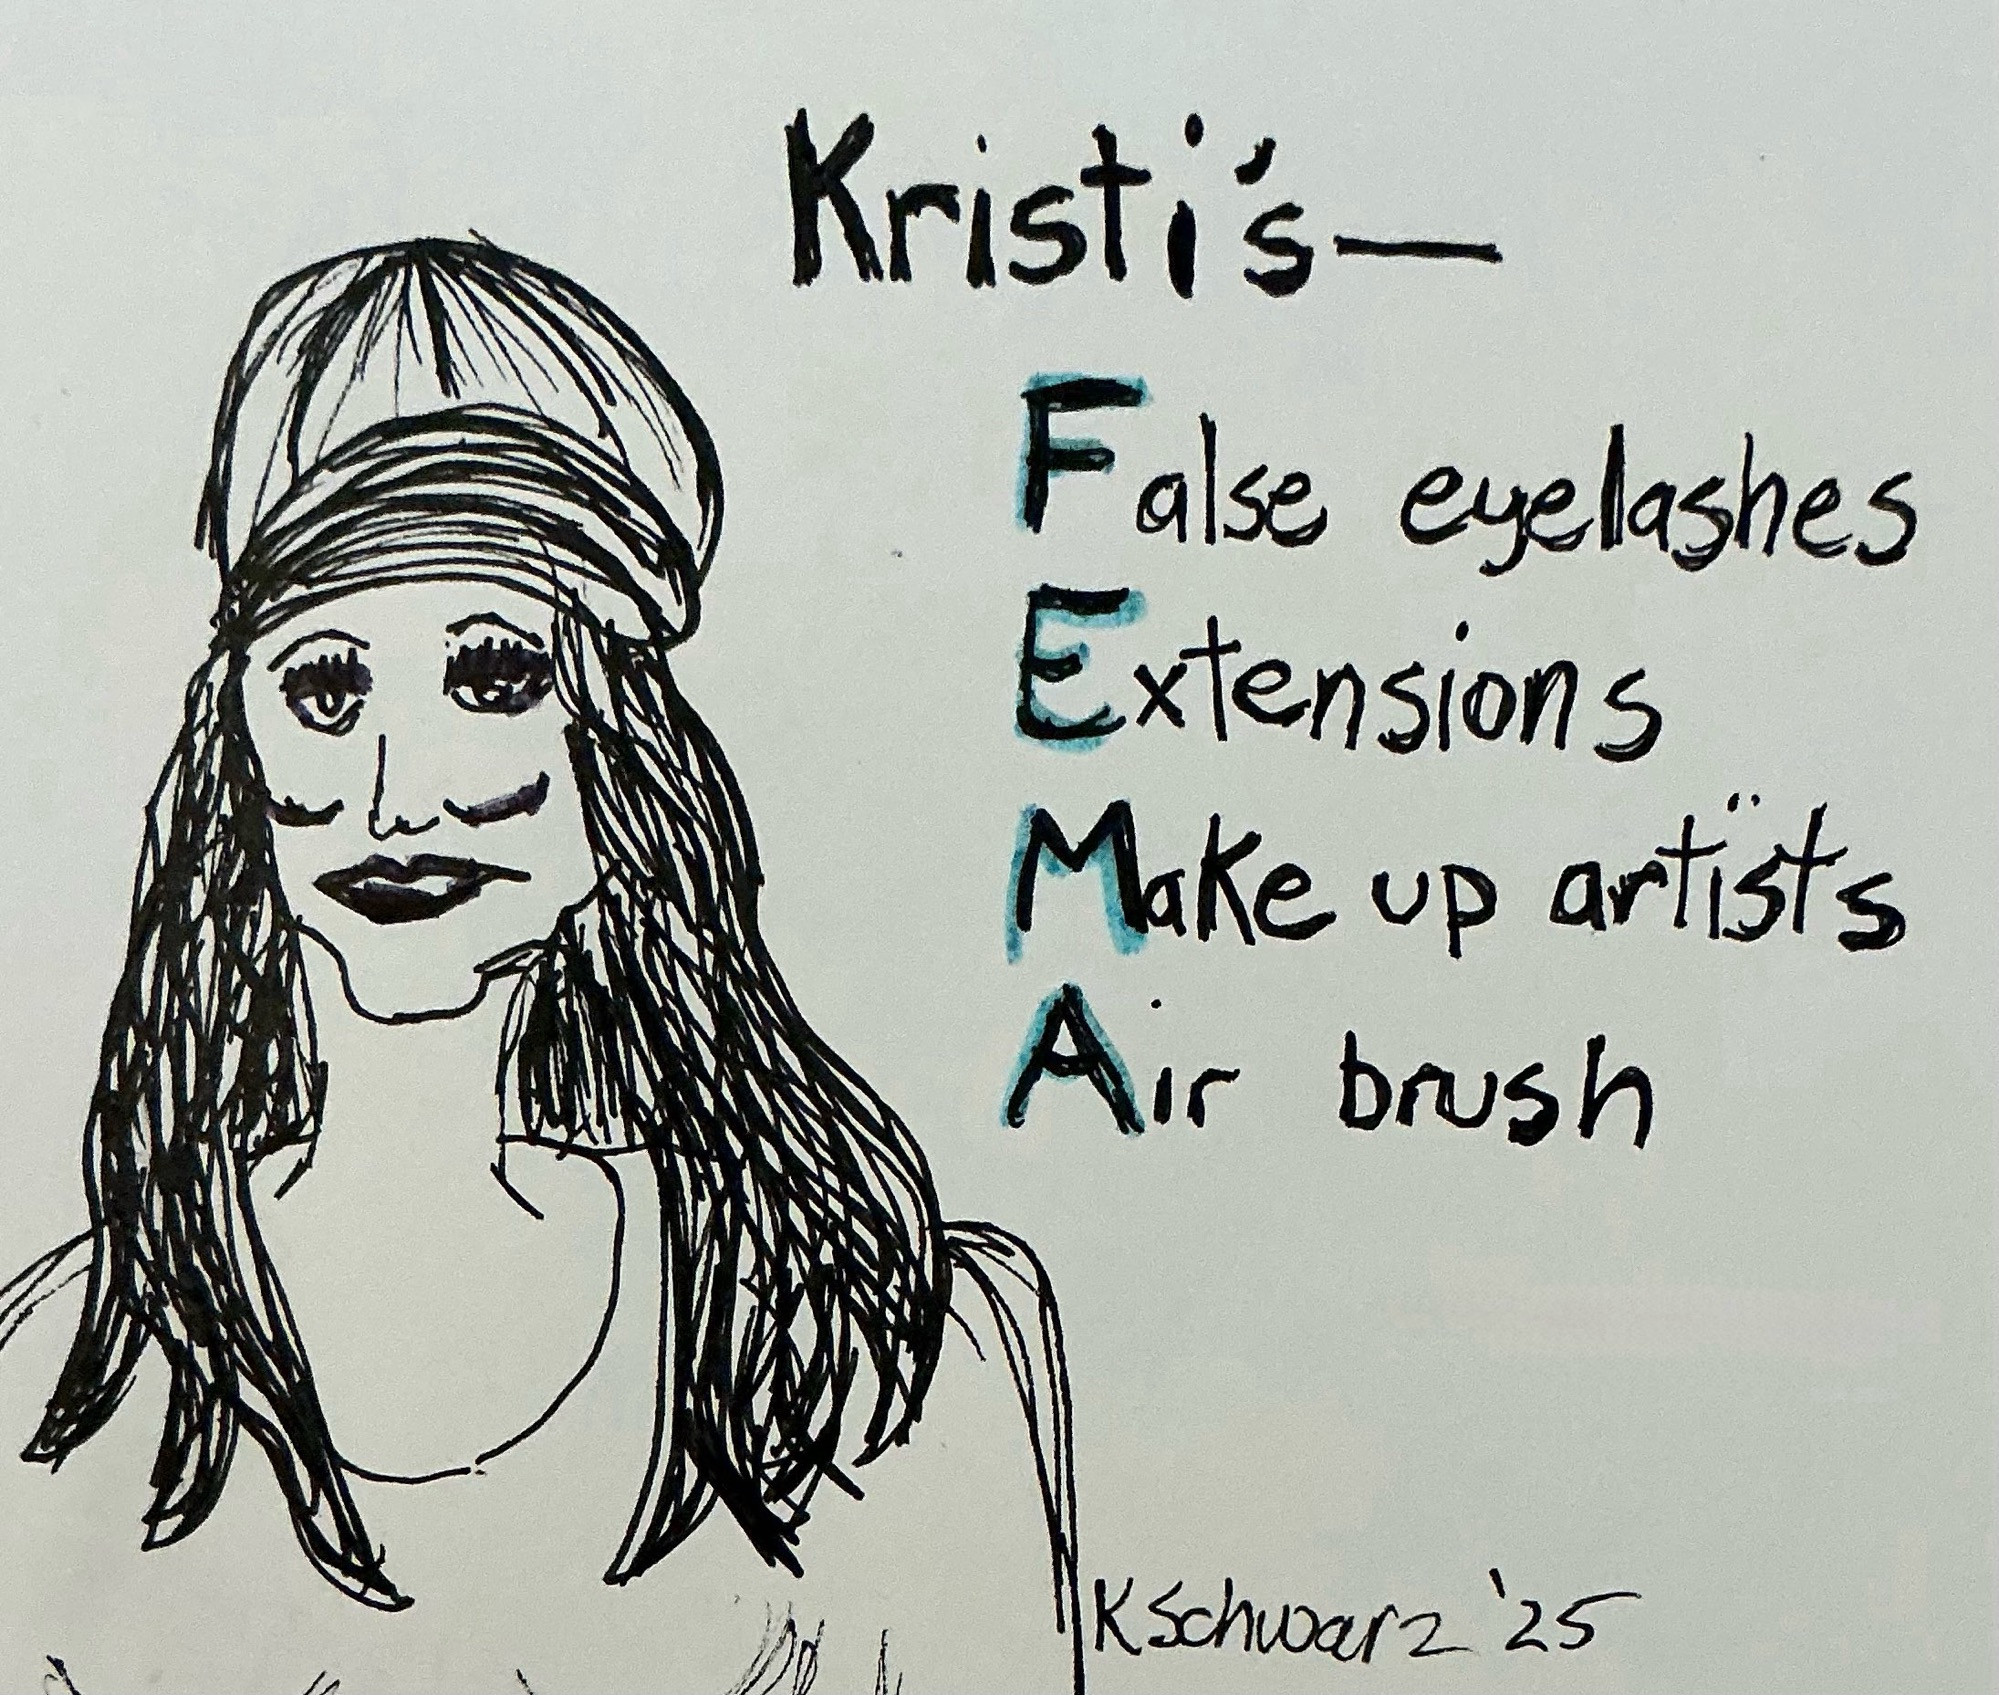 Kristi's—
False eyelashes
Extensions
Make up artists
Air brush
KSchwarz '25